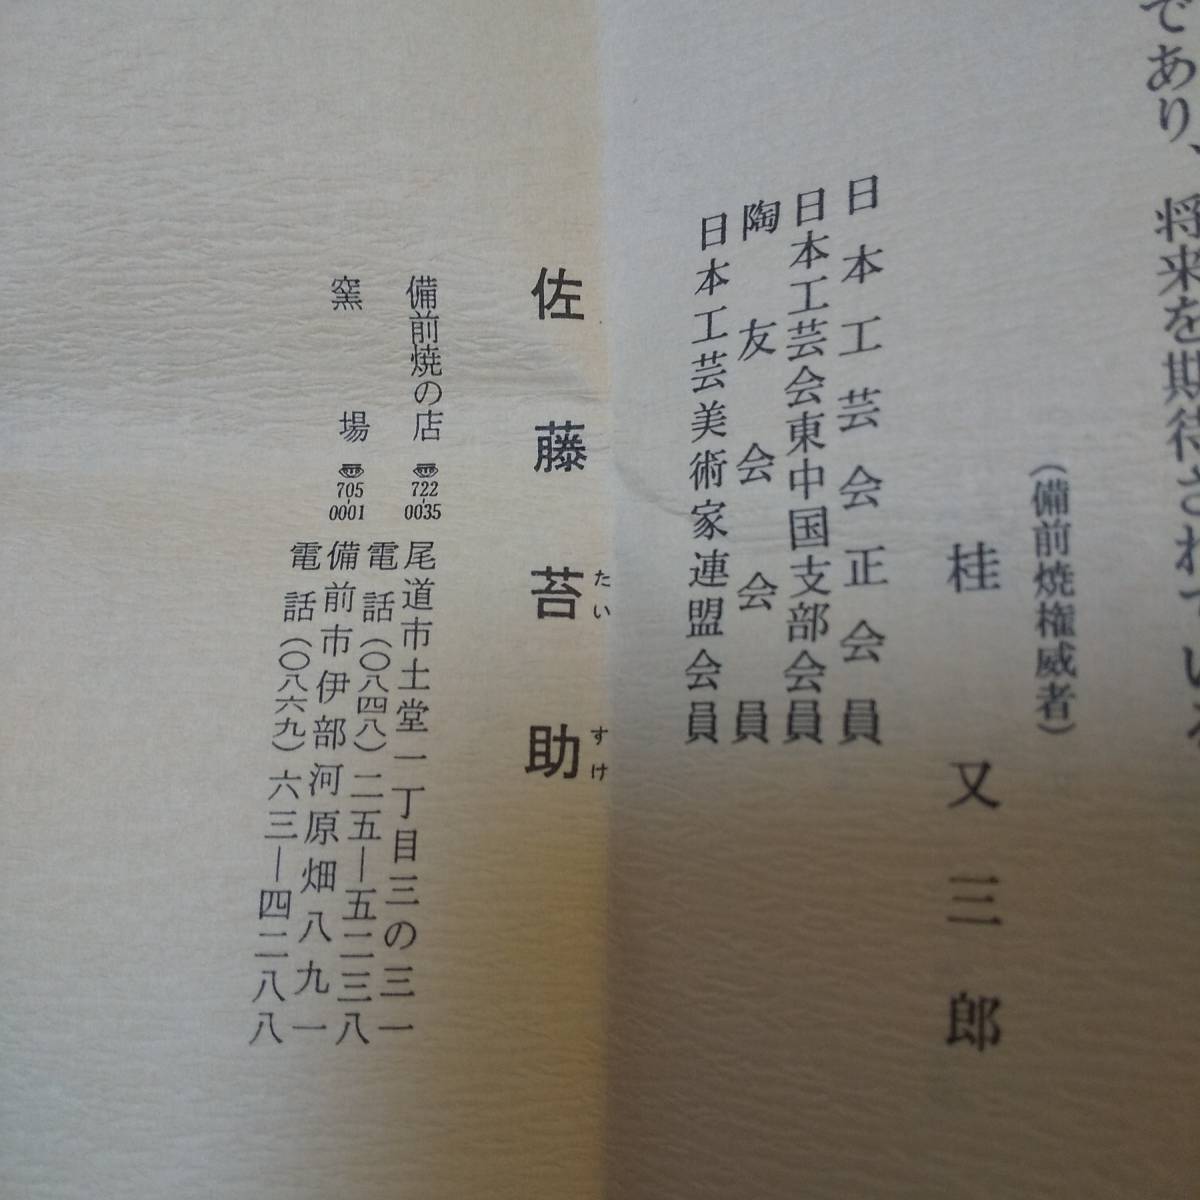 であり、将来を期待されている
（備前焼権威者）
桂又三郎
日本工芸会正会員
日本工芸会東中国支部会員
陶友会会員
日本工芸美術家連盟会員
佐藤苔助
たいすけ
備前焼の店 722-0035 尾道市土堂一丁目三の三一
電話（〇八四八）二五―五二三八
窯場 705-0001 備前市伊部河原畑八九一
電話（〇八六九）六三―四二八八